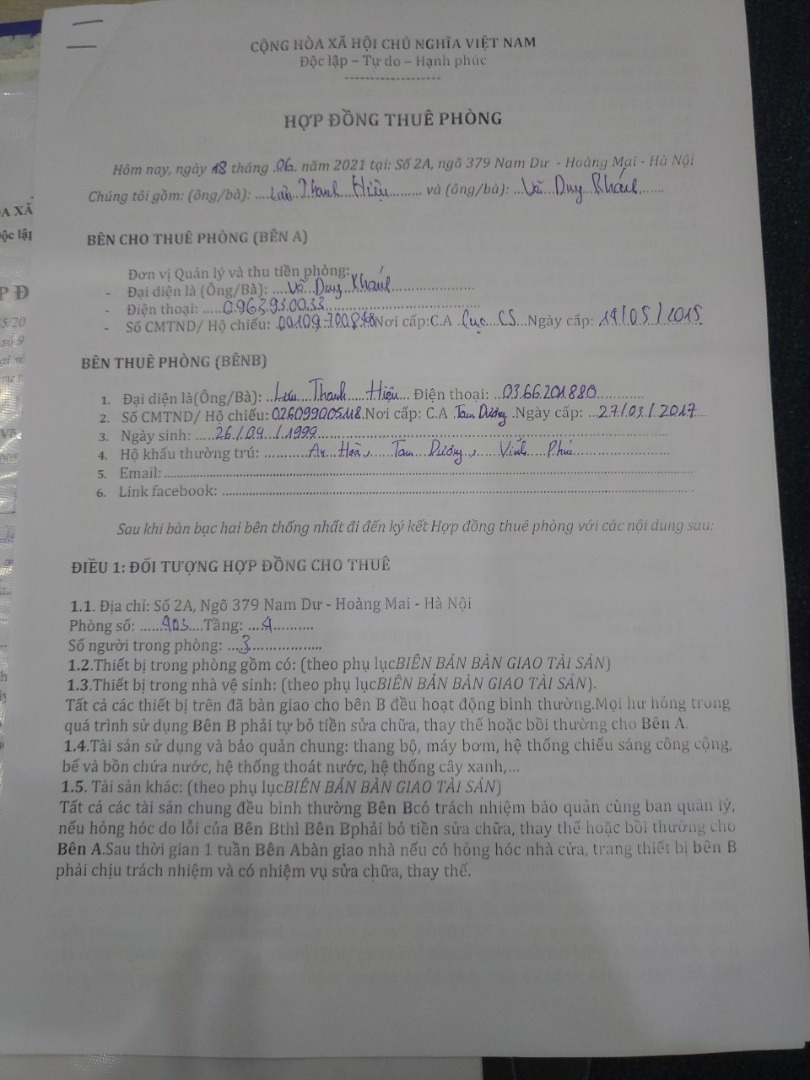 CỘNG HÒA XÃ HỘI CHỦ NGHĨA VIỆT NAM
Độc lập – Tự do – Hạnh phúc
-------------------
HỢP ĐỒNG THUÊ PHÒNG
Hôm nay, ngày 18 tháng .06. năm 2021 tại: Số 2A, ngõ 379 Nam Dư - Hoàng Mai - Hà Nội
Chúng tôi gồm: (ông/bà): ....Lưu Thanh Hiệu......... và (ông/bà): ...Vũ Duy Khánh.......
BÊN CHO THUÊ PHÒNG (BÊN A)
Đơn vị Quản lý và thu tiền phòng:
- Đại diện là (Ông/Bà): ....Vũ Duy Khánh....................
- Điện thoại: ......0963.93.0033...................................
- Số CMTND/ Hộ chiếu: Nơi cấp:C.A .Cục CS...Ngày cấp: 19/05/2015
BÊN THUÊ PHÒNG (BÊNB)
1. Đại diện là(Ông/Bà): ..Lưu...Thanh...Hiệu.. Điện thoại: ..0366.201880............
2. Số CMTND/ Hộ chiếu: 026099005118.Nơi cấp: C.A .Tam Dương .Ngày cấp: ...27/03/2017...
3. Ngày sinh: .....26./04../.1999.................................................................
4. Hộ khẩu thường trú: ..........An Hoà., Tam Dương.,.... Vĩnh....Phúc....................
5. Email:..........................................................................................
6. Link facebook: ................................................................................
Sau khi bàn bạc hai bên thống nhất đi đến ký kết Hợp đồng thuê phòng với các nội dung sau:
ĐIỀU 1: ĐỐI TƯỢNG HỢP ĐỒNG CHO THUÊ
1.1. Địa chỉ: Số 2A, Ngõ 379 Nam Dư - Hoàng Mai - Hà Nội
Phòng số: ......403....Tầng: ...4..........
Số người trong phòng: ...3..................
1.2.Thiết bị trong phòng gồm có: (theo phụ lụcBIÊN BẢN BÀN GIAO TÀI SẢN)
1.3.Thiết bị trong nhà vệ sinh: (theo phụ lụcBIÊN BẢN BÀN GIAO TÀI SẢN).
Tất cả các thiết bị trên đã bàn giao cho bên B đều hoạt động bình thường.Mọi hư hỏng trong
quá trình sử dụng Bên B phải tự bỏ tiền sửa chữa, thay thế hoặc bồi thường cho Bên A.
1.4.Tài sản sử dụng và bảo quản chung: thang bộ, máy bơm, hệ thống chiếu sáng công cộng,
bể và bồn chứa nước, hệ thống thoát nước, hệ thống cây xanh,...
1.5. Tài sản khác: (theo phụ lụcBIÊN BẢN BÀN GIAO TÀI SẢN)
Tất cả các tài sản chung đều bình thường Bên Bcó trách nhiệm bảo quản cùng ban quản lý,
nếu hỏng hóc do lỗi của Bên Bthì Bên Bphải bỏ tiền sửa chữa, thay thế hoặc bồi thường cho
Bên A.Sau thời gian 1 tuần Bên Abàn giao nhà nếu có hỏng hóc nhà cửa, trang thiết bị bên B
phải chịu trách nhiệm và có nhiệm vụ sửa chữa, thay thế.